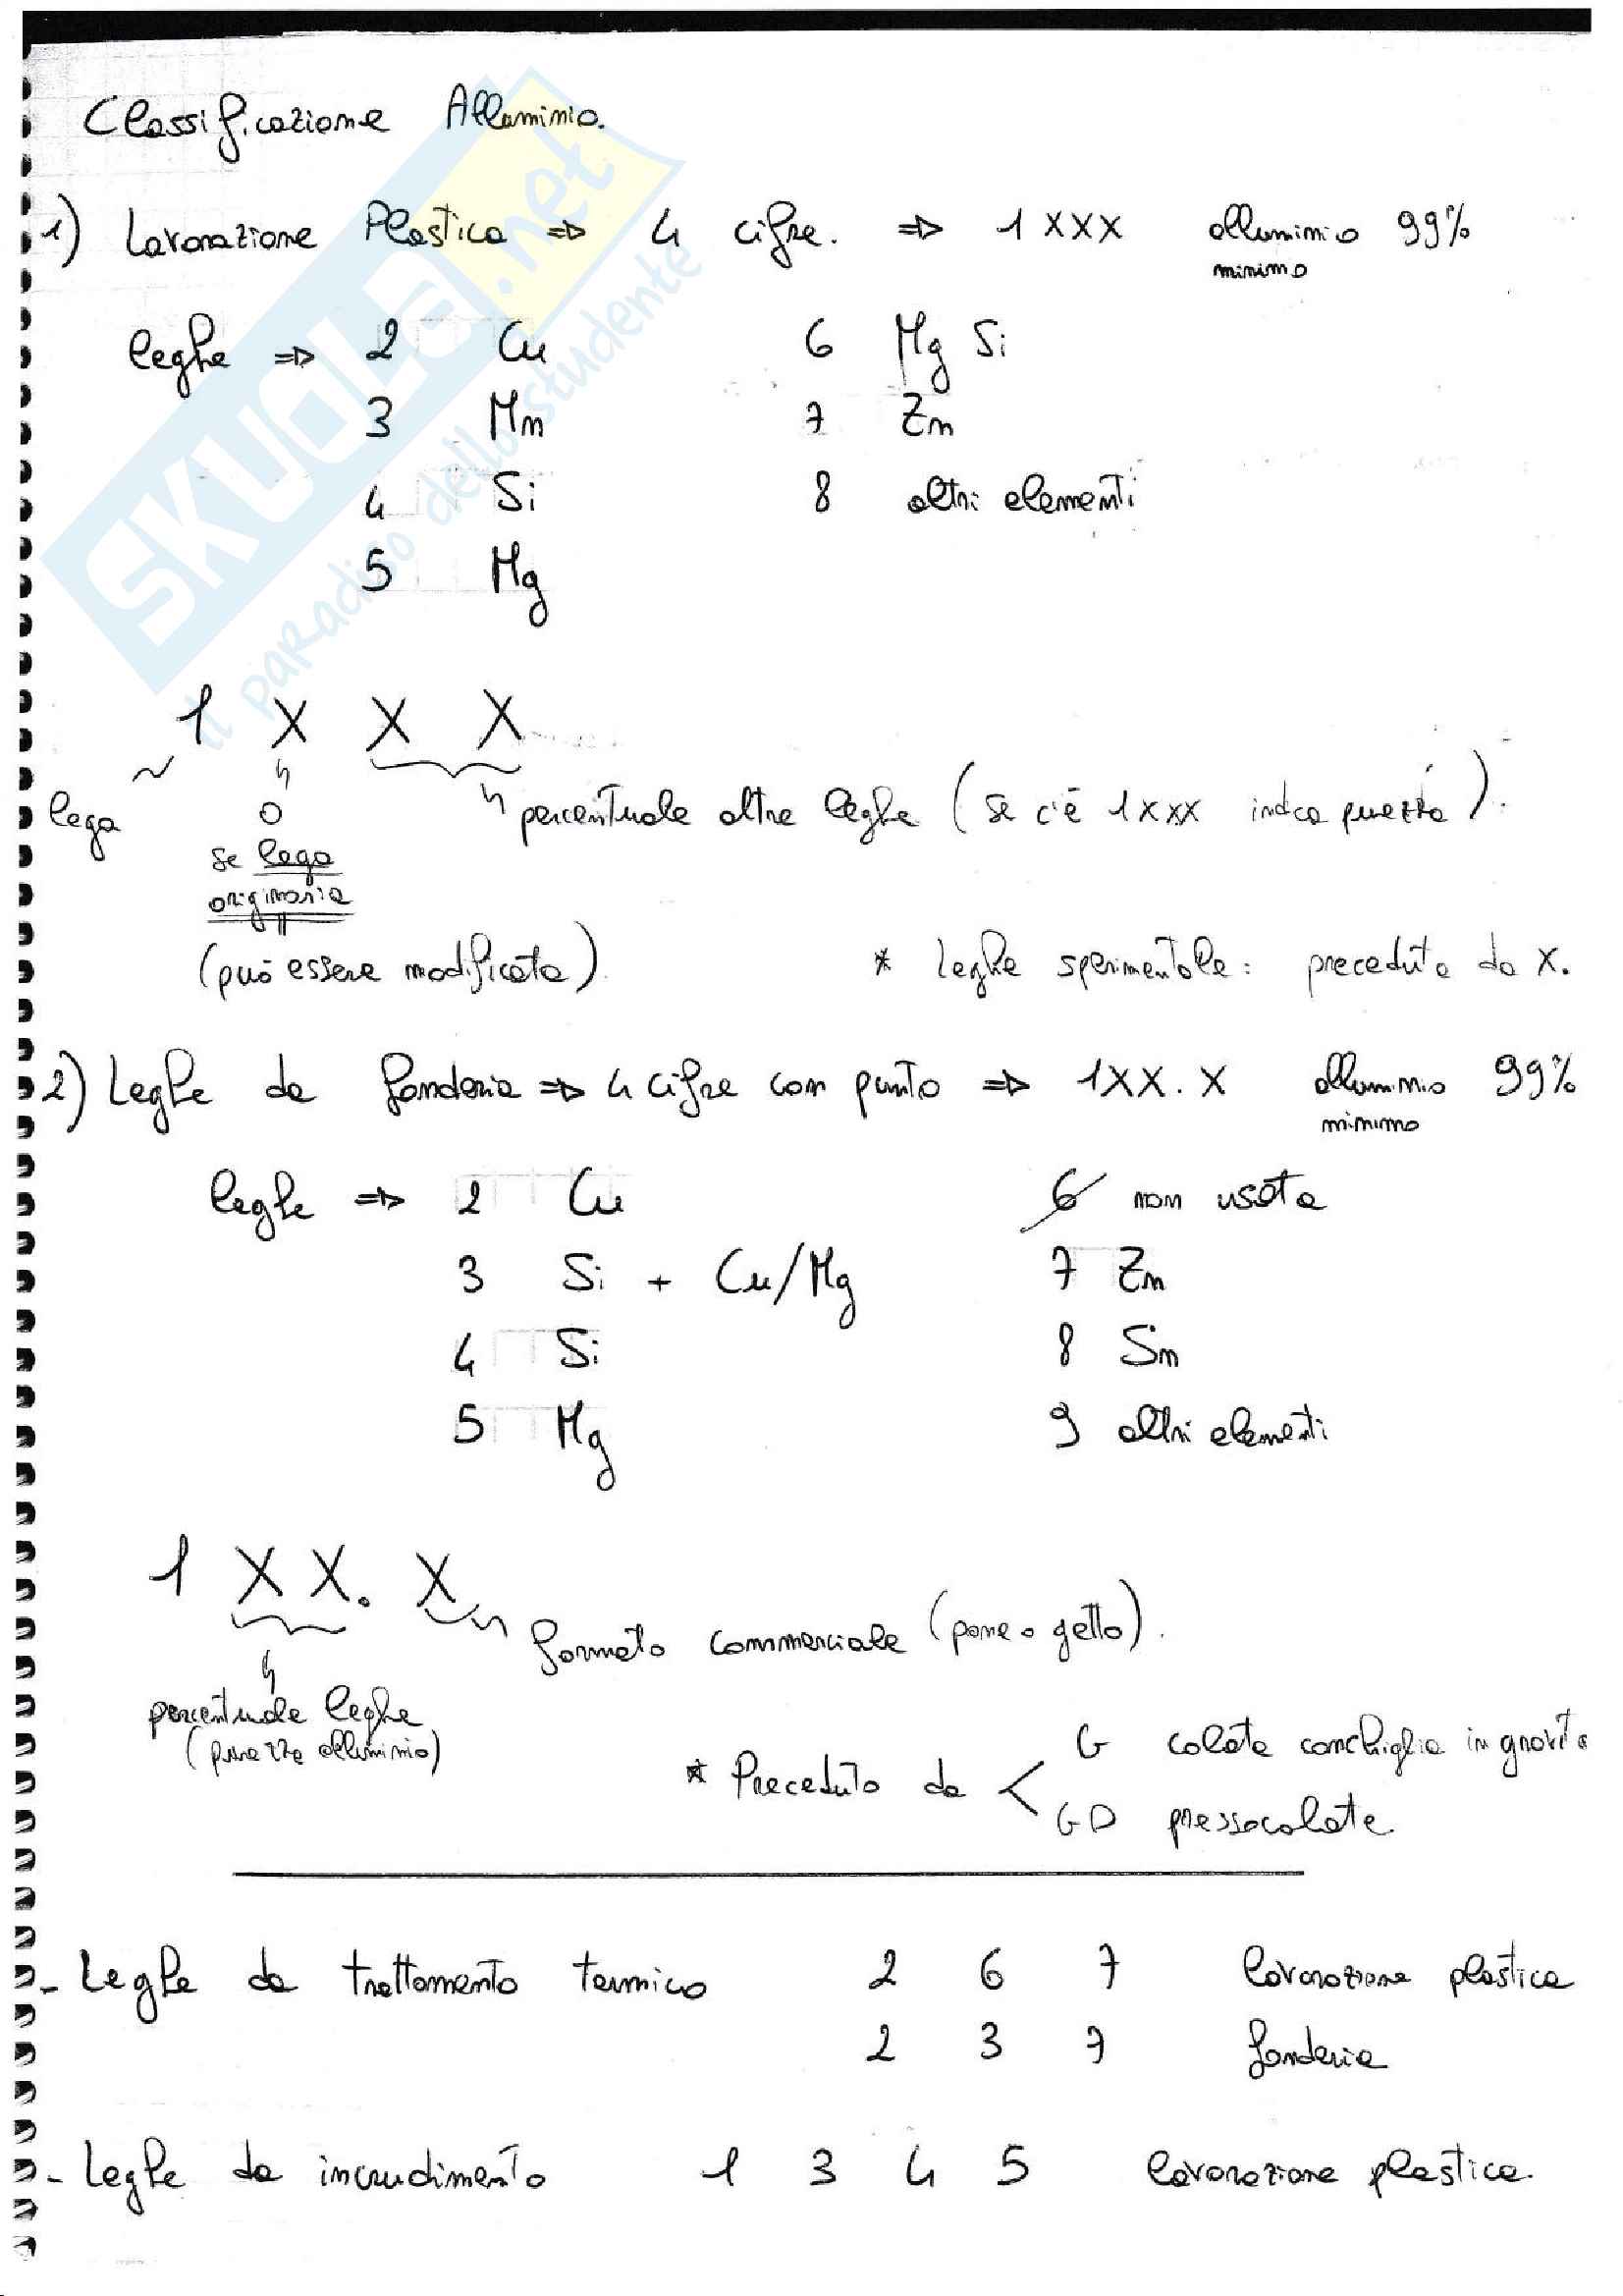 Classificazione Alluminio.
1) Lavorazione Plastica => 4 cifre. => 1XXX alluminio 99%
minimo
leghe => 2 Cu 6 Mg Si
3 Mn 7 Zn
4 Si 8 altri elementi
5 Mg
1 X X X
lega 0 percentuale altre leghe (se c'è 1xxx indica purezza).
se lega
originaria
(può essere modificata)
* Leghe sperimentale: preceduta da X.
2) Leghe da fonderia => 4 cifre con punto => 1XX.X alluminio 99%
minimo
leghe => 2 Cu 6 non usata
3 Si + Cu/Mg 7 Zn
4 Si 8 Sn
5 Mg 9 altri elementi
1 X X. X
formato commerciale (pane o getto).
percentuale leghe
(purezza alluminio)
* Preceduto da < G colata conchiglia in gravità
GD pressocolata
- Leghe da trattamento termico 2 6 7 lavorazione plastica
2 3 7 fonderia
- Leghe da incrudimento 1 3 4 5 lavorazione plastica.
SKUOLA.net
il paradiso dello studente